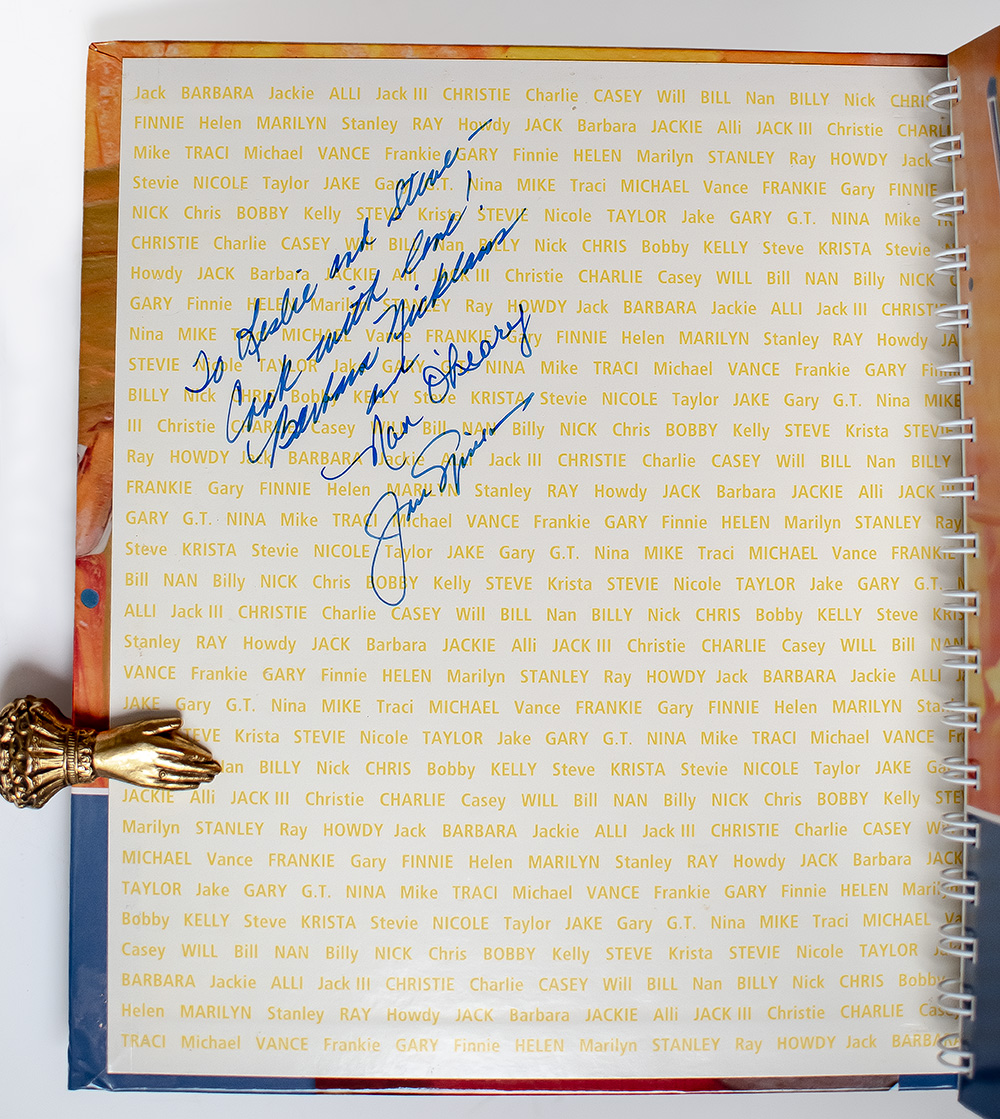 Jack BARBARA Jackie ALLI Jack III CHRISTIE Charlie CASEY Will BILL Nan BILLY Nick
FINNIE Helen MARILYN Stanley RAY Howdy JACK Barbara JACKIE Alli JACK III Christie
Mike TRACI Michael VANCE Frankie GARY Finnie HELEN Marilyn STANLEY Ray HOWDY Jack
Stevie NICOLE Taylor JAKE Gary G.T. Nina MIKE Traci MICHAEL Vance FRANKIE Gary FINNIE
NICK Chris BOBBY Kelly STEVE Krista STEVIE Nicole TAYLOR Jake GARY G.T. NINA Mike
CHRISTIE Charlie CASEY Will BILL Nan BILLY Nick CHRIS Bobby KELLY Steve KRISTA Stevie
Howdy JACK Barbara JACKIE Alli Jack III Christie CHARLIE Casey WILL Bill NAN Billy NICK
GARY Finnie HELEN Marilyn STANLEY Ray HOWDY Jack BARBARA Jackie ALLI Jack III CHRISTIE
Nina MIKE Traci MICHAEL Vance FRANKIE Gary FINNIE Helen MARILYN Stanley RAY Howdy
STEVIE Nicole TAYLOR Jake GARY G.T. NINA Mike TRACI Michael VANCE Frankie GARY
BILLY Nick CHRIS Bobby KELLY Steve KRISTA Stevie NICOLE Taylor JAKE Gary G.T. Nina MIKE
III Christie CHARLIE Casey WILL Bill NAN Billy NICK Chris BOBBY Kelly STEVE Krista STEVIE
Ray HOWDY Jack BARBARA Jackie ALLI Jack III CHRISTIE Charlie CASEY Will BILL Nan BILLY
FRANKIE Gary FINNIE Helen MARILYN Stanley RAY Howdy JACK Barbara JACKIE Alli JACK
GARY G.T. NINA Mike TRACI Michael VANCE Frankie GARY Finnie HELEN Marilyn STANLEY Ray
Steve KRISTA Stevie NICOLE Taylor JAKE Gary G.T. Nina MIKE Traci MICHAEL Vance FRANKIE
Bill NAN Billy NICK Chris BOBBY Kelly STEVE Krista STEVIE Nicole TAYLOR Jake GARY G.T.
ALLI Jack III CHRISTIE Charlie CASEY Will BILL Nan BILLY Nick CHRIS Bobby KELLY Steve
Stanley RAY Howdy JACK Barbara JACKIE Alli JACK III Christie CHARLIE Casey WILL Bill NAN
VANCE Frankie GARY Finnie HELEN Marilyn STANLEY Ray HOWDY Jack BARBARA Jackie ALLI
JAKE Gary G.T. Nina MIKE Traci MICHAEL Vance FRANKIE Gary FINNIE Helen MARILYN
STEVE Krista STEVIE Nicole TAYLOR Jake GARY G.T. NINA Mike TRACI Michael VANCE
Nan BILLY Nick CHRIS Bobby KELLY Steve KRISTA Stevie NICOLE Taylor JAKE
JACKIE Alli JACK III Christie CHARLIE Casey WILL Bill NAN Billy NICK Chris BOBBY Kelly
Marilyn STANLEY Ray HOWDY Jack BARBARA Jackie ALLI Jack III CHRISTIE Charlie CASEY
MICHAEL Vance FRANKIE Gary FINNIE Helen MARILYN Stanley RAY Howdy JACK Barbara
TAYLOR Jake GARY G.T. NINA Mike TRACI Michael VANCE Frankie GARY Finnie HELEN
Bobby KELLY Steve KRISTA Stevie NICOLE Taylor JAKE Gary G.T. Nina MIKE Traci MICHAEL
Casey WILL Bill NAN Billy NICK Chris BOBBY Kelly STEVE Krista STEVIE Nicole TAYLOR
BARBARA Jackie ALLI Jack III CHRISTIE Charlie CASEY Will BILL Nan BILLY Nick CHRIS Bobby
Helen MARILYN Stanley RAY Howdy JACK Barbara JACKIE Alli JACK III Christie CHARLIE
TRACI Michael VANCE Frankie GARY Finnie HELEN Marilyn STANLEY Ray HOWDY Jack
To Leslie and Steve —
Cook with love!
Barbara Nicklaus
and
Nan O'Leary